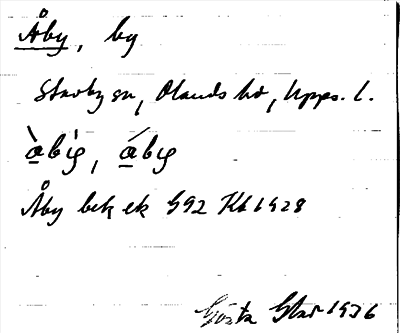 Åby, by
Stavby sn, Olands hd, Upps. l.
àby̆, áby
Åby bek ek 592 Kbl 1928
Gösta 1936